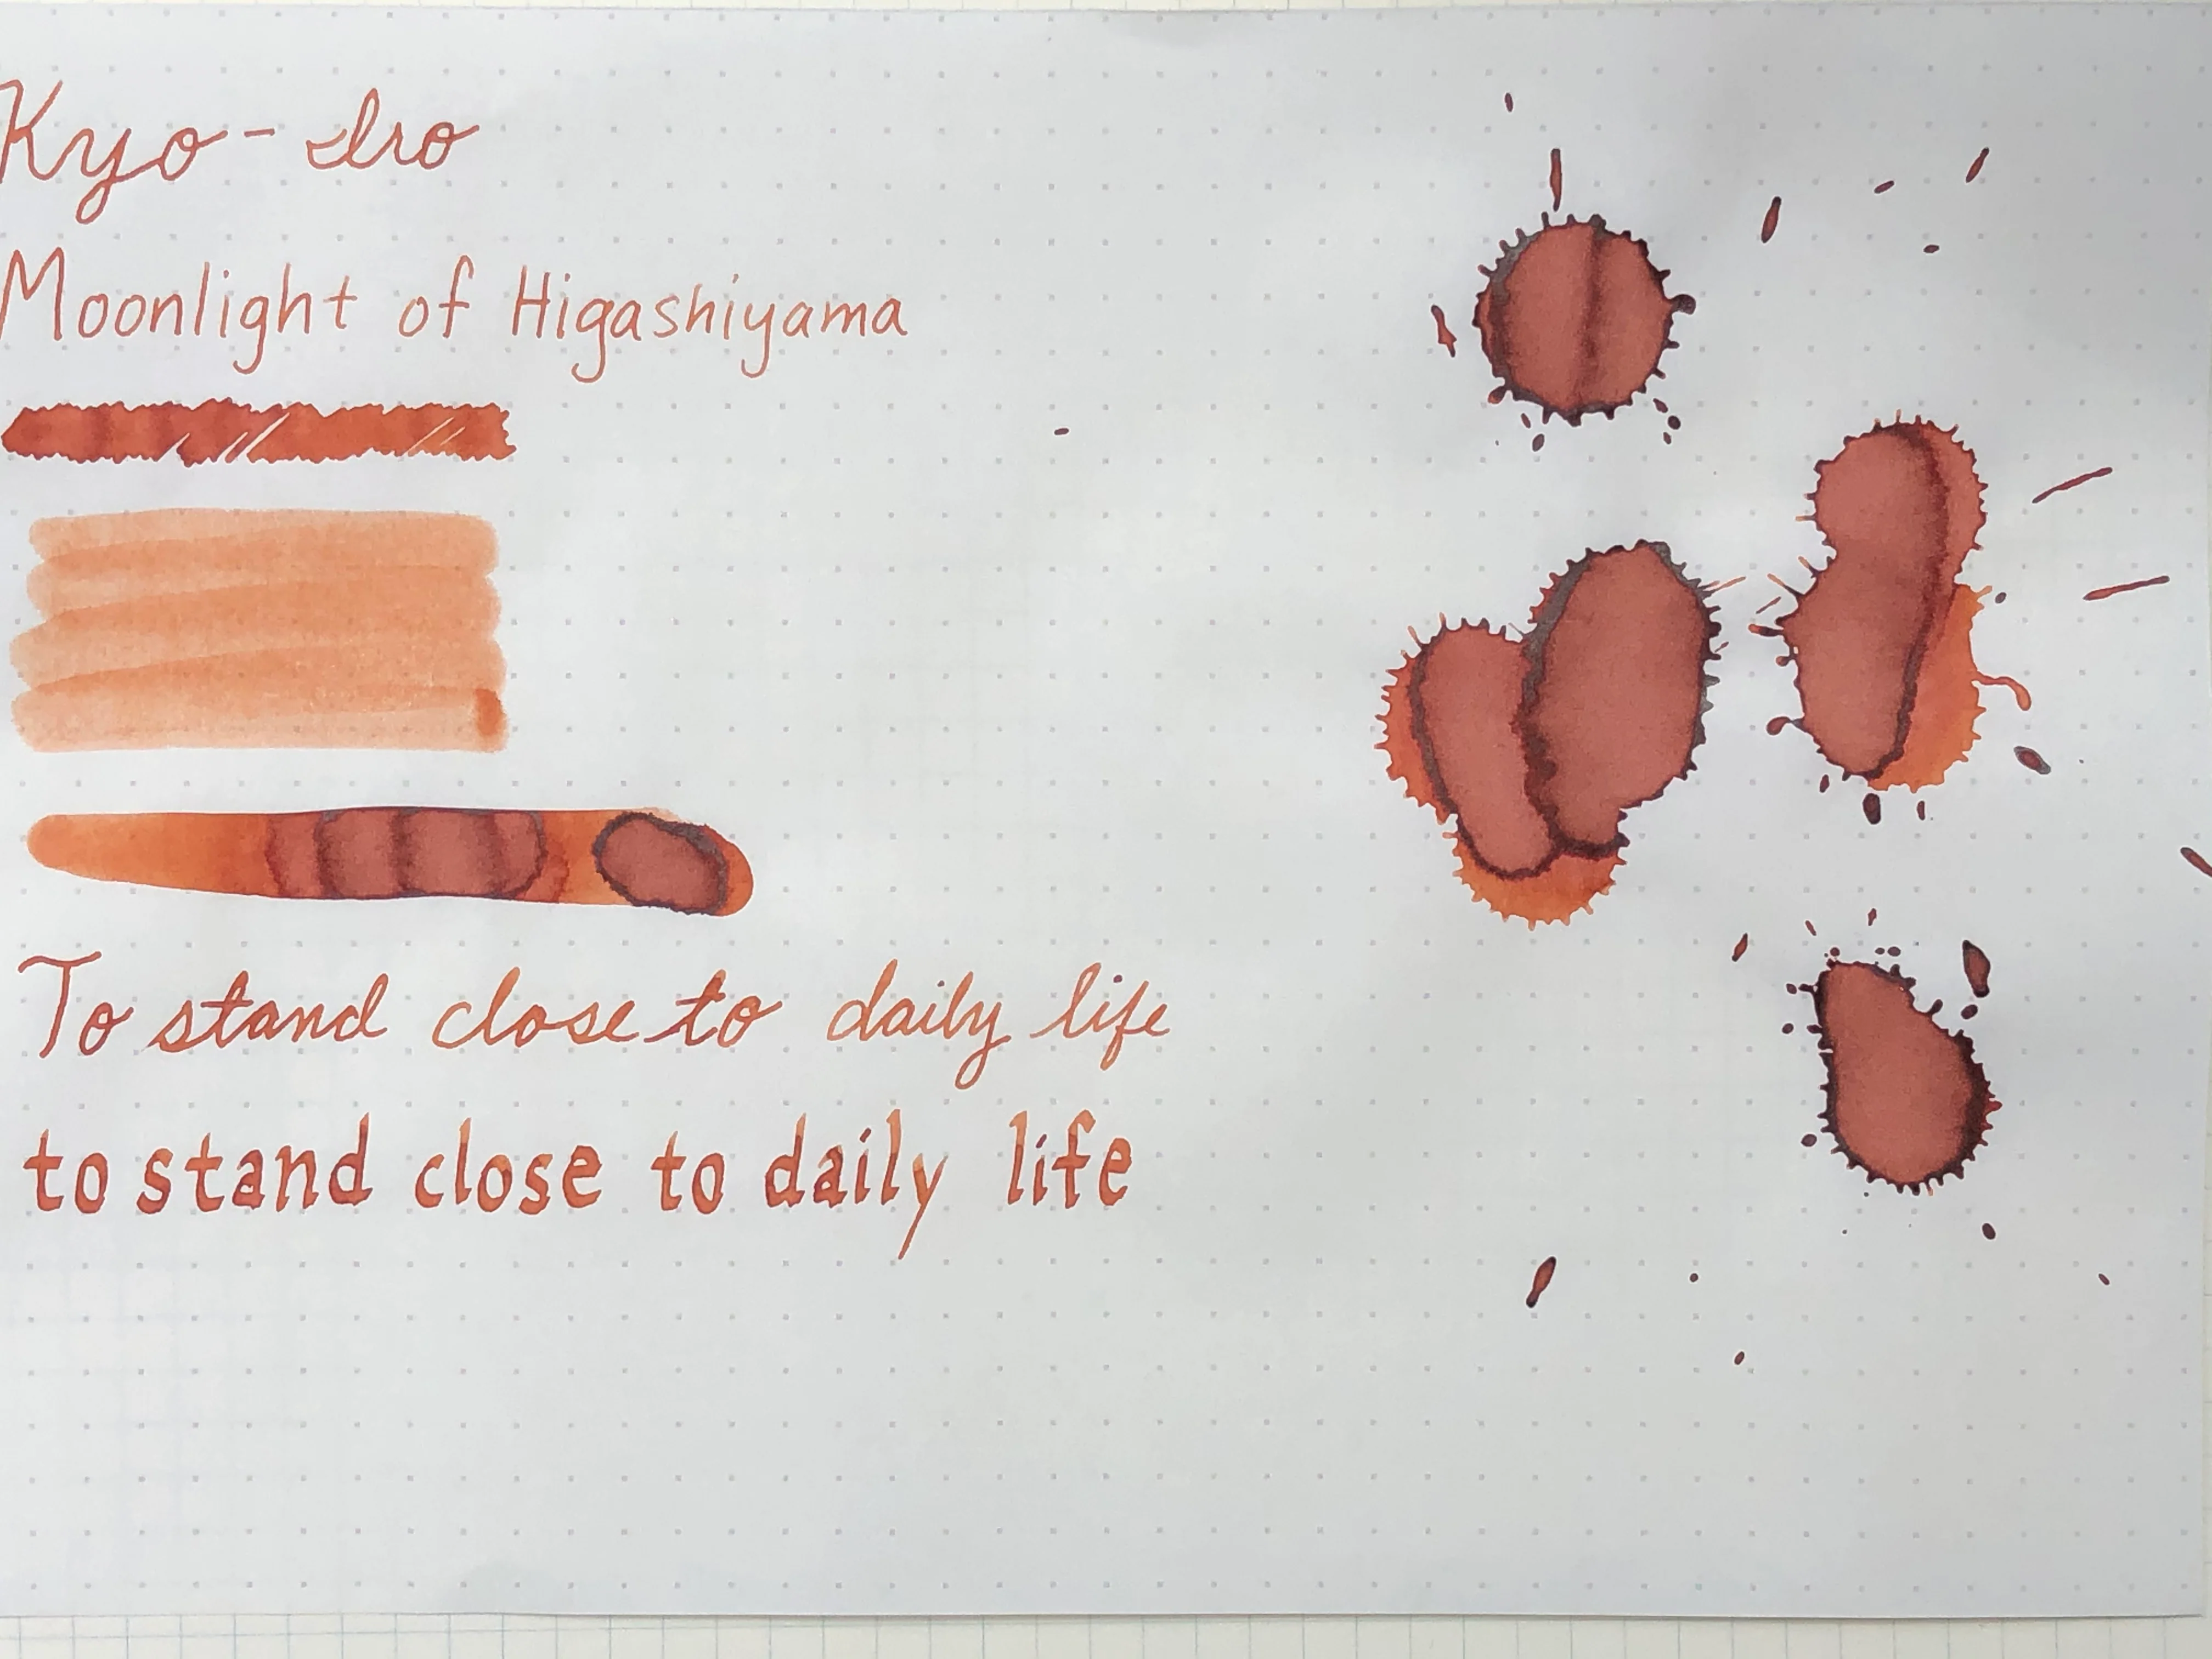 Kyo-Iro
Moonlight of Higashiyama
To stand close to daily life
to stand close to daily life